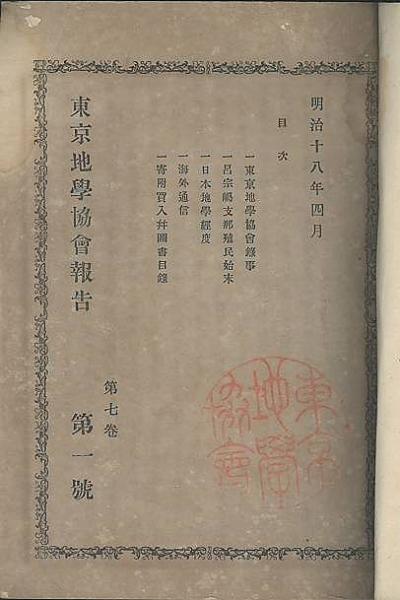 明治十八年四月
目次
一東京地學協會錄事
一呂宋嶋支那殖民始末
一日本地學經度
一海外通信
一寄附買入幷圖書目錄
東京地學協會報告
第七卷
第一號
東京
地學
協會